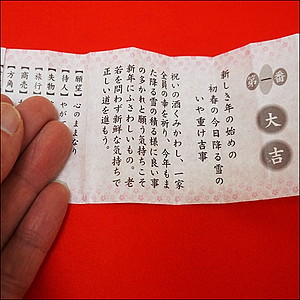 第一番
大吉
新しき年の始めの
初春の今日降る雪の
いや重け吉事
祝いの酒くみかわし、一家
全員の幸を祈り、今年もま
た降る雪の積る様に良い事
の多かれと願う気持ちこそ
新年にふさわしいもの。老
若を問わず新鮮な気持ちで
正しい道を進もう。
【願望】心のままなり
【待人】
【失物】
【旅行】
【商売】
【方角】